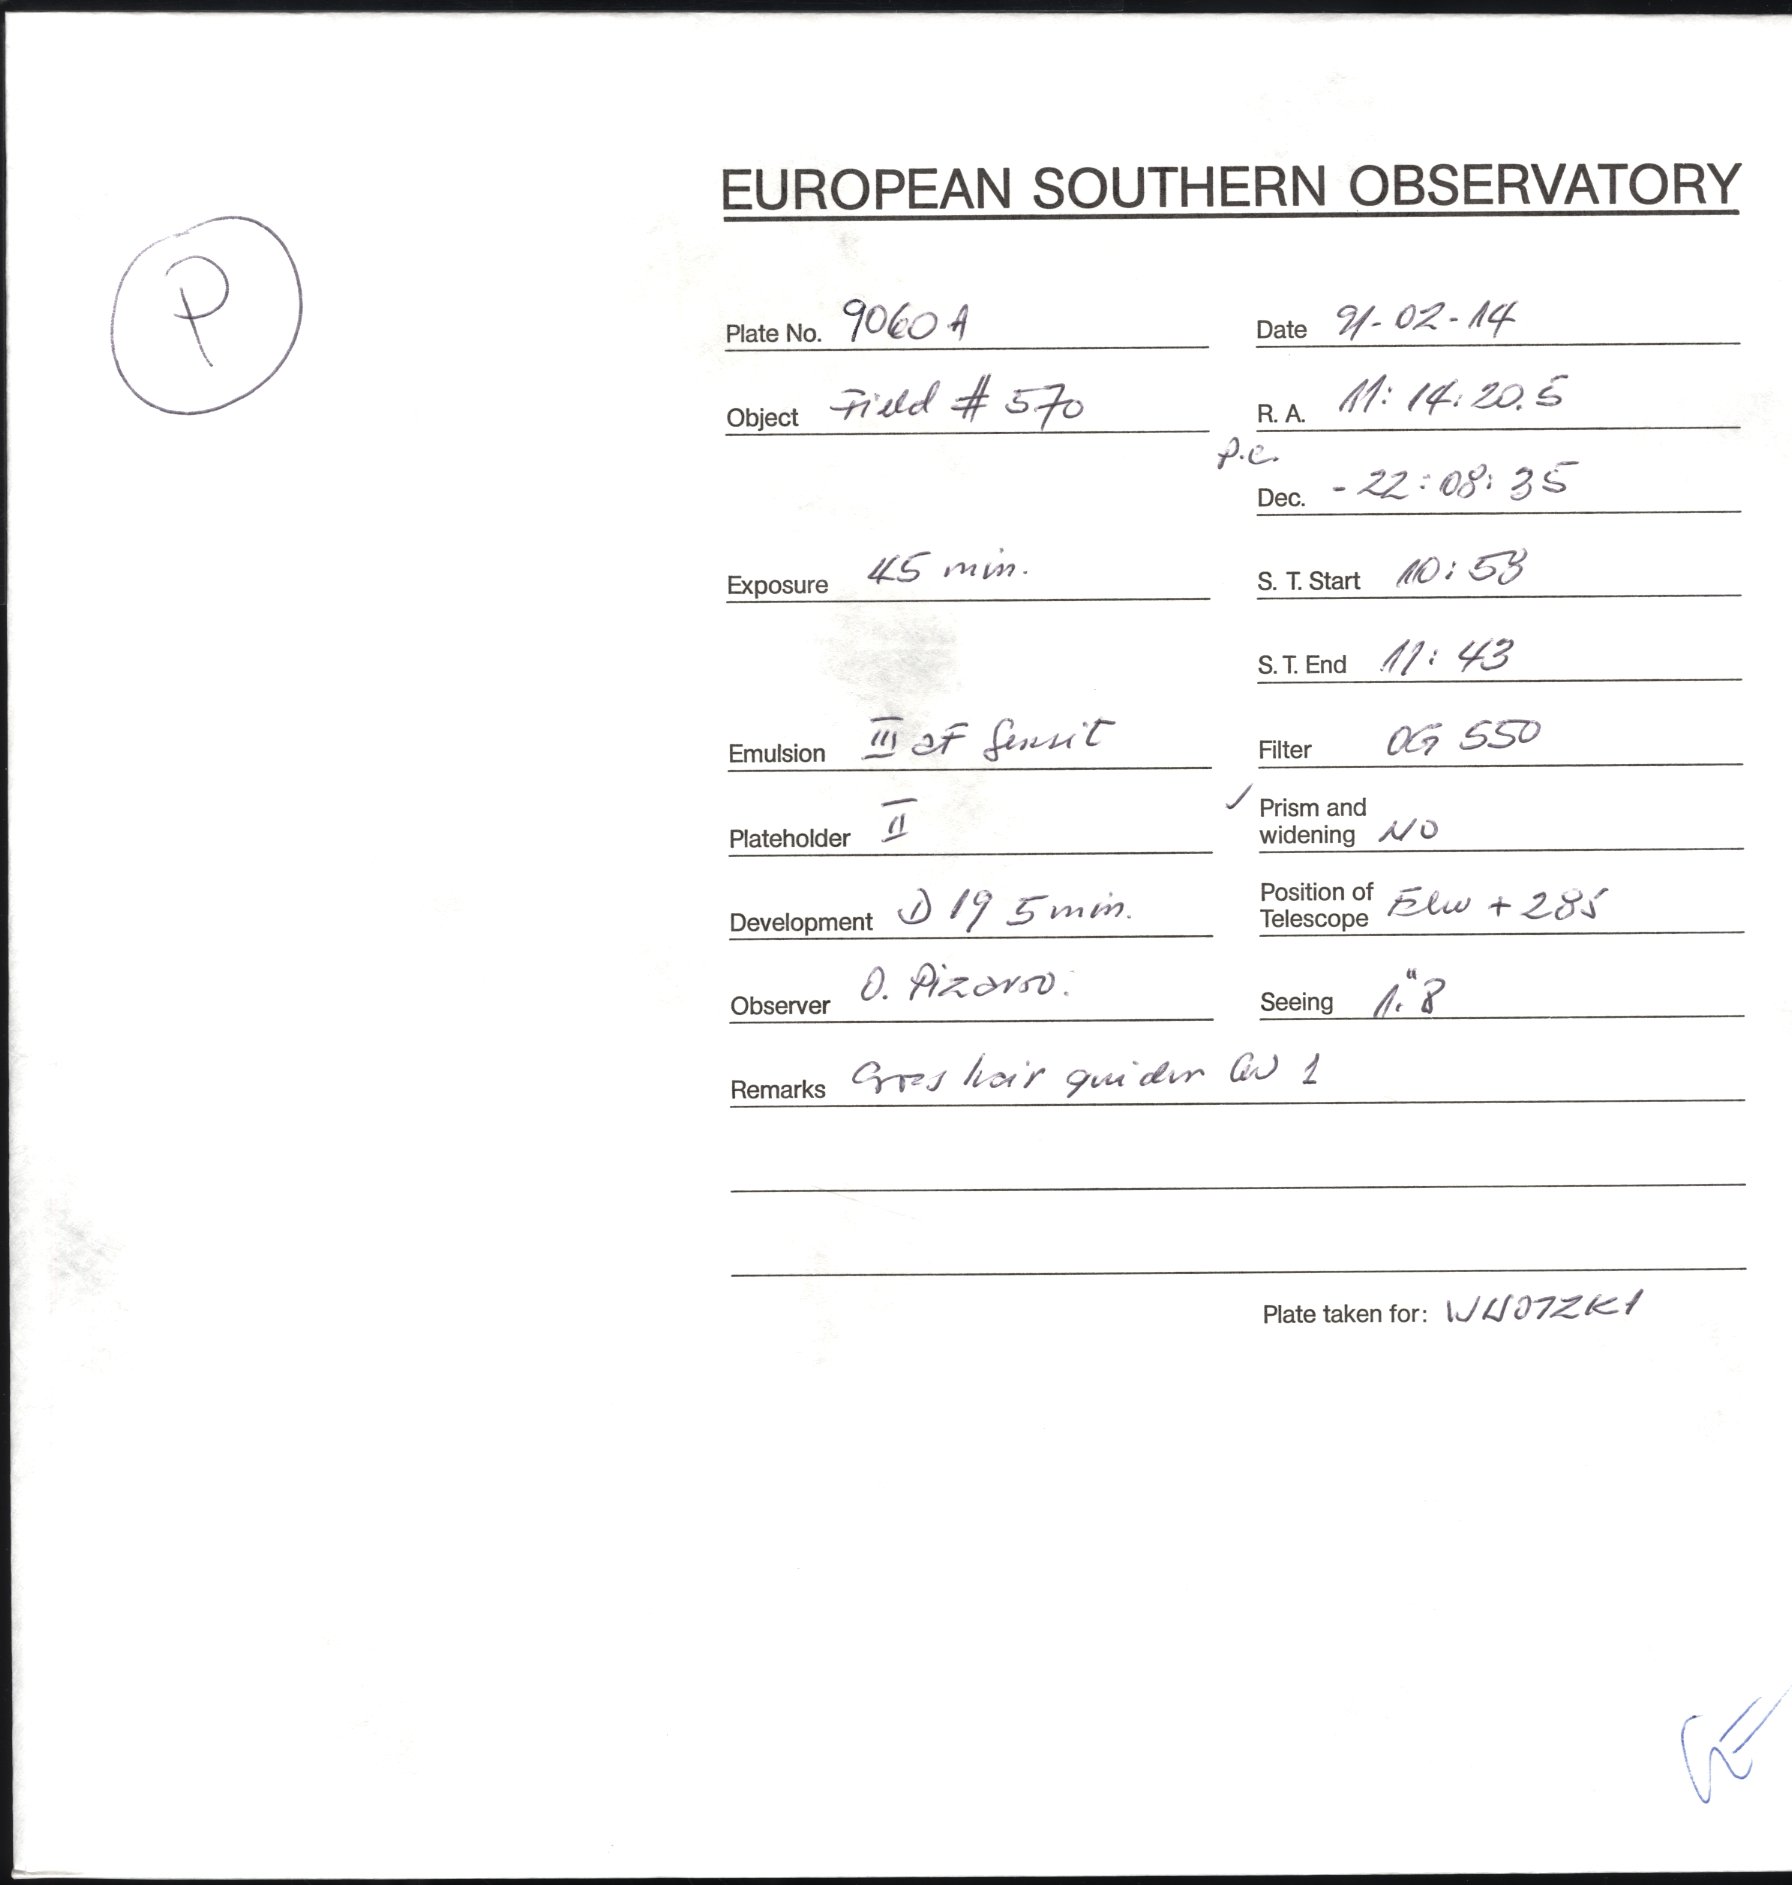 EUROPEAN SOUTHERN OBSERVATORY
P
Plate No. 9060 A
Date 91-02-14
Object Field # 570
R. A. 11: 14: 20.5
p.e.
Dec. - 22: 08: 35
Exposure 45 min.
S. T. Start 10: 58
S. T. End 11: 43
Emulsion III aF Sensit
Filter OG 550
Plateholder II
✓ Prism and
widening NO
Development D 19 5 min.
Position of
Telescope + 285
Observer O. Pizarro.
Seeing 1."8
Remarks Cros hair guider 1
Plate taken for: